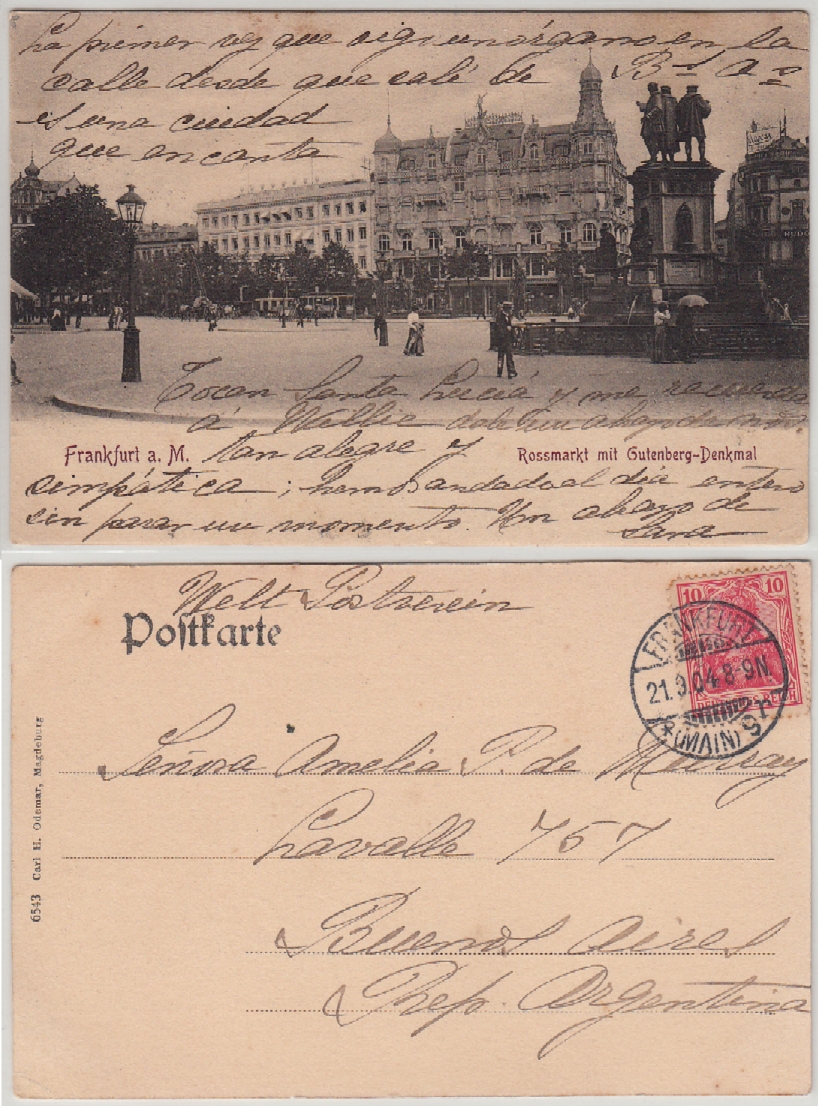 La primer vez que oigo un órgano en la
calle desde que salí de Bs As
es una ciudad
que encanta
Tocan Santa Lucia y me recuerda
á Willie dale un abazo de nos.
tan alegre y
Frankfurt a. M.
Rossmarkt mit Gutenberg-Denkmal
simpática; hemos andado el dia entero
sin parar un momento. Un abazo de
Sara
Welt Postverein
Poſtkarte
10 10
DEUTSCHES REICH
FRANKFURT
21.9.04. 8-9N.
* (MAIN) 9
Señora Amelia P. de
Lavalle 757
Buenos Aires
Rep. Argentina
6543 Carl H. Odemar, Magdeburg